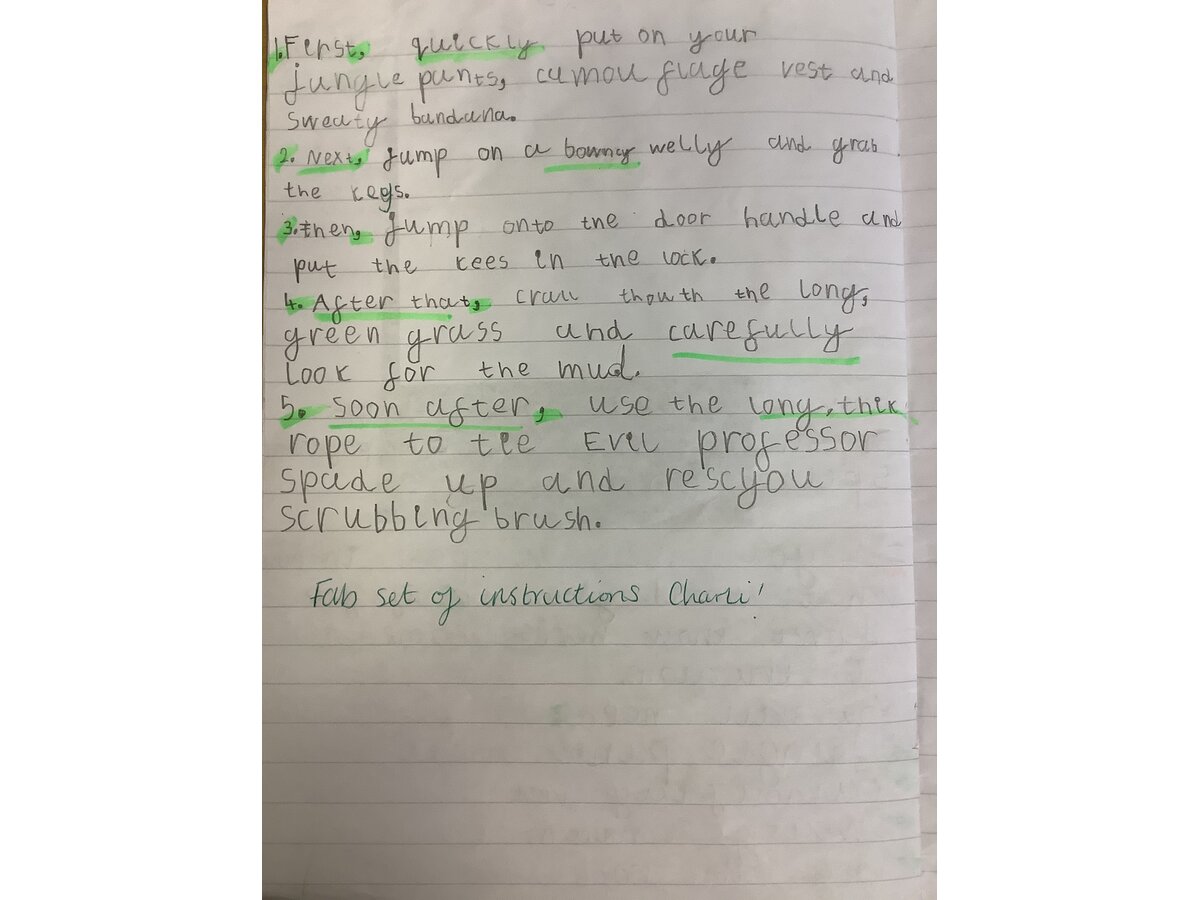 1. First, quickly put on your
jungle pants, camouflage vest and
sweaty bandana.
2. Next, jump on a bowncy welly and grab
the keys.
3. then, jump onto the door handle and
put the kees in the lock.
4. After that, crall thouth the long,
green grass and carefully
look for the mud.
5. Soon after, use the long, thik
rope to tee Evil professor
spade up and rescyou
scrubbing brush.
Fab set of instructions Charli!